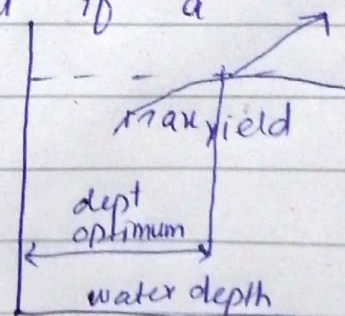 if a
max yield
dept
optimum
water depth